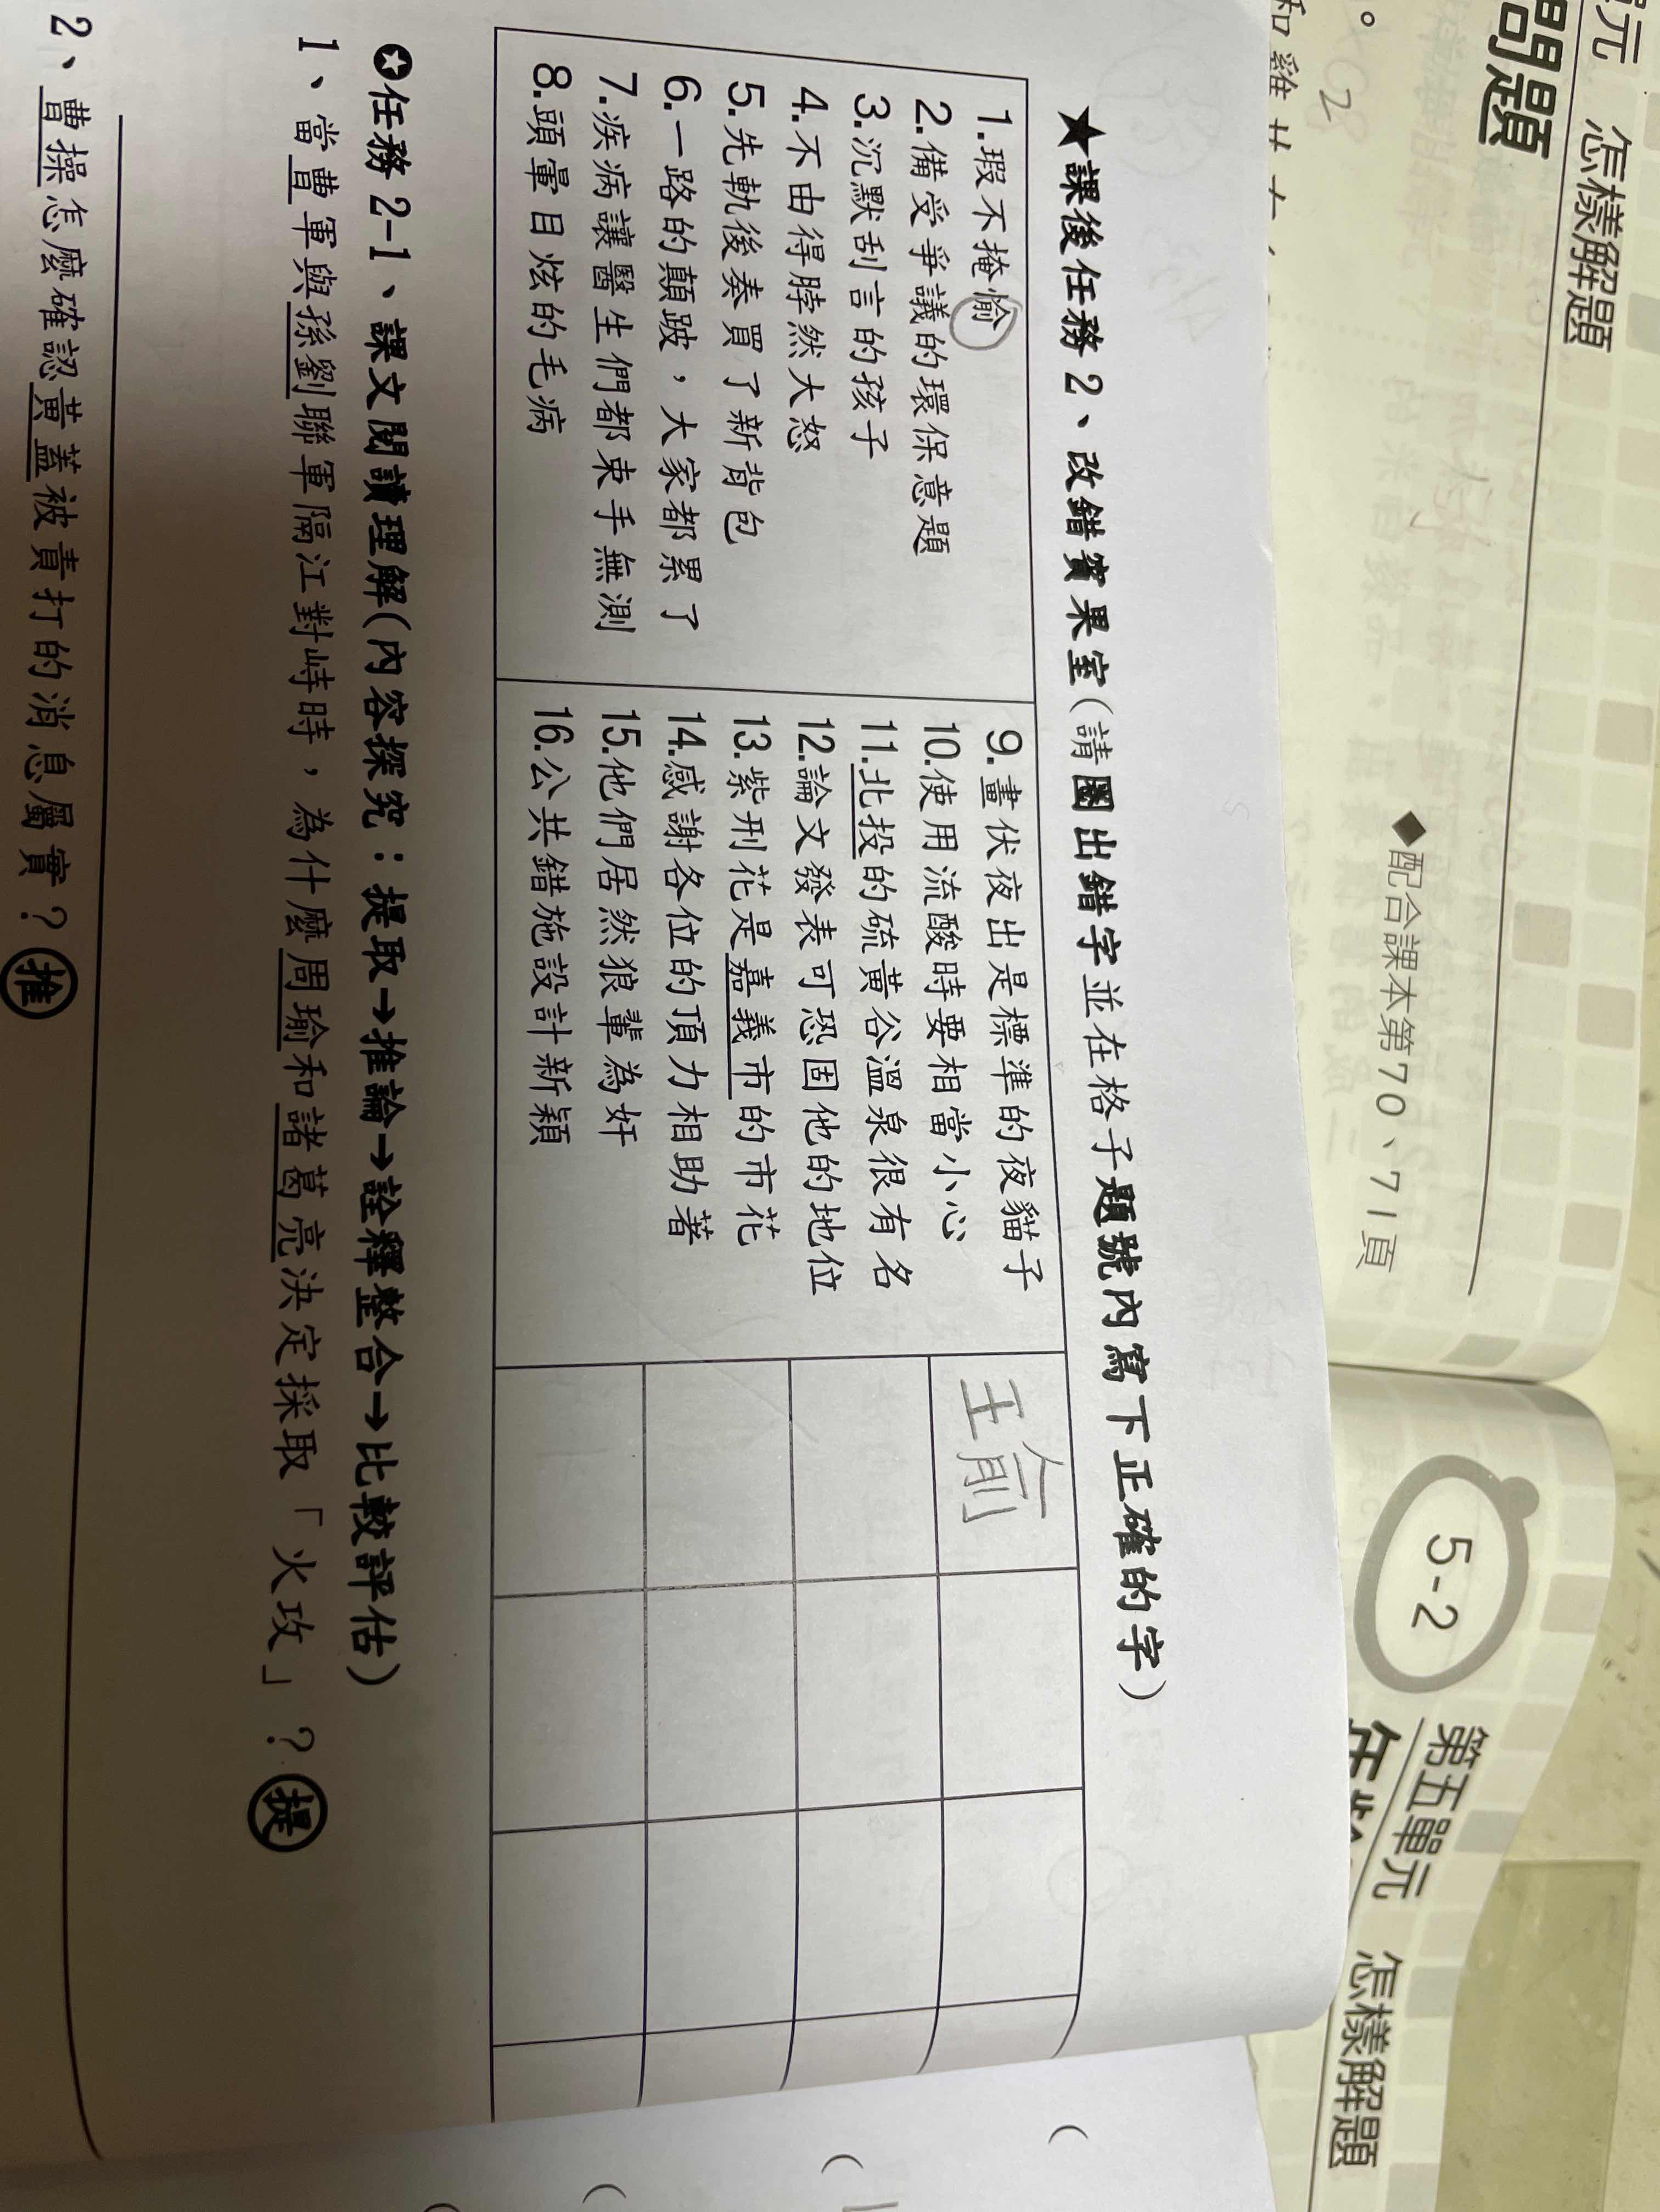 元 怎樣解題
問題
◆配合課本第70、71頁
5-2
第五單元 怎樣解題
★課後任務 2、改錯賓果室(請圈出錯字並在格子題號內寫下正確的字)
1.瑕不掩愉
2.備受爭議的環保意題
3.沉默刮言的孩子
4.不由得脖然大怒
5.先軌後奏買了新背包
6.一路的顛跛，大家都累了
7.疾病讓醫生們都束手無測
8.頭暈目炫的毛病
9.畫伏夜出是標準的夜貓子
10.使用流酸時要相當小心
11.北投的硫黃谷溫泉很有名
12.論文發表可恐固他的地位
13.紫刑花是嘉義市的市花
14.感謝各位的頂力相助著
15.他們居然狼輩為奸
16.公共錯施設計新穎
瑜
✪任務 2-1、課文閱讀理解(內容探究：提取→推論→詮釋整合→比較評估)
1、當曹軍與孫劉聯軍隔江對峙時，為什麼周瑜和諸葛亮決定採取「火攻」？提
2、曹操怎麼確認黃蓋被責打的消息屬實？推